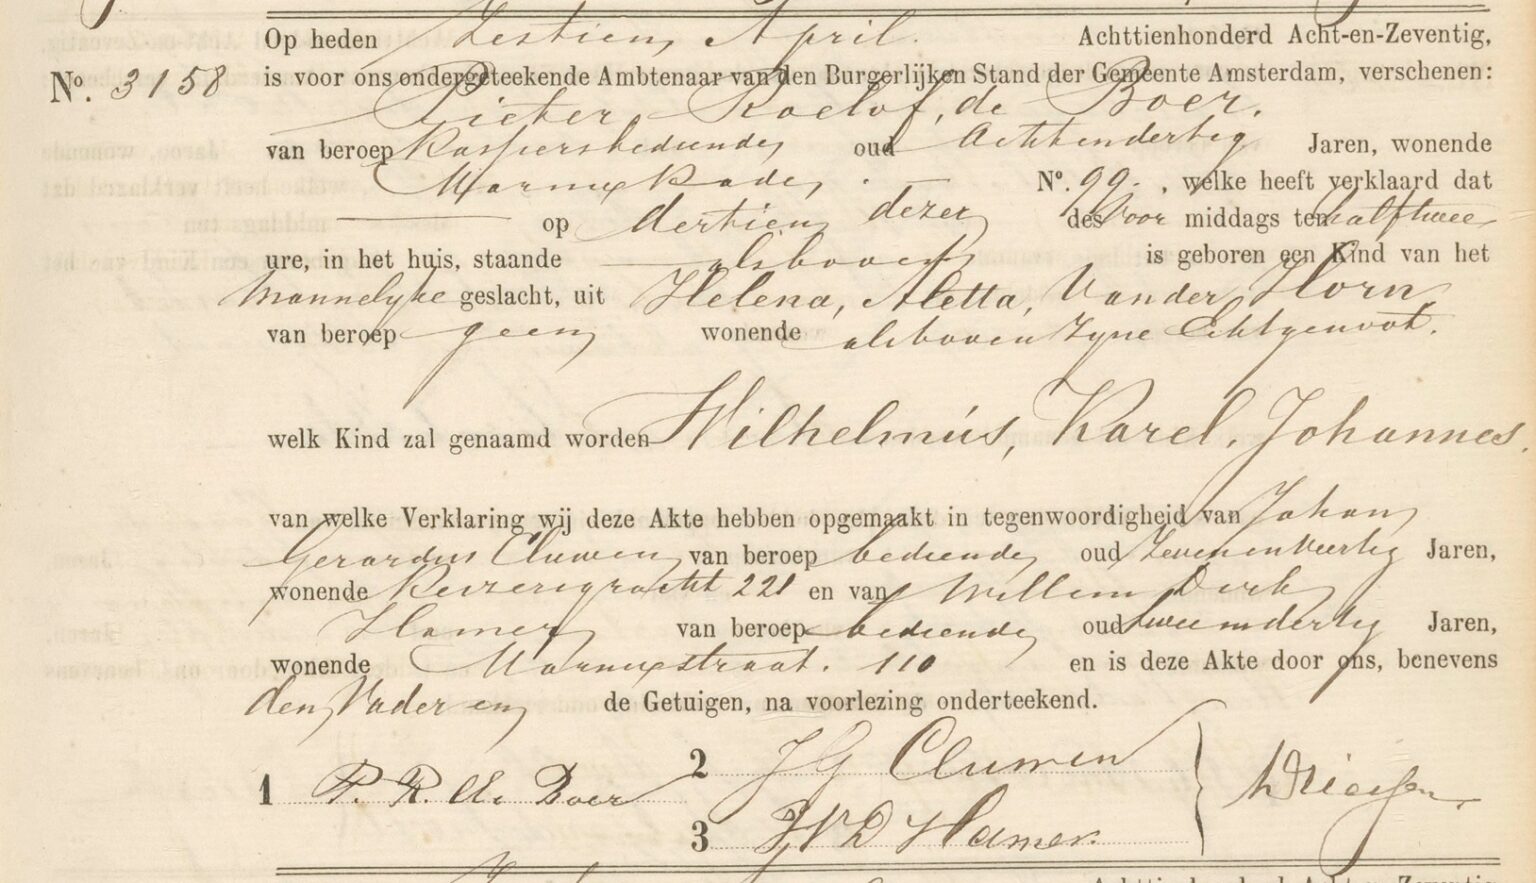 Op heden Zestien April. Achttienhonderd Acht-en-Zeventig,
No. 3158 is voor ons ondergeteekende Ambtenaar van den Burgerlijken Stand der Gemeente Amsterdam, verschenen:
Pieter Roelof, de Boer.
van beroep kasteeleinsbediende oud Achtendertig Jaren, wonende
Marnixkade, No. 99. , welke heeft verklaard dat
op dertien dezer des Voor middags ten half twee
ure, in het huis, staande alsboven is geboren een Kind van het
Mannelyke geslacht, uit Helena, Aletta, Van der Horn,
van beroep geen wonende alsboven zyne Echtgenoot.
welk Kind zal genaamd worden Wilhelmus, Karel, Johannes.
van welke Verklaring wij deze Akte hebben opgemaakt in tegenwoordigheid van Johan
Gerardus Cluwen van beroep bediende oud Zevenenveertig Jaren,
wonende Keizersgracht 221 en van Willem Dirk
Hamer van beroep bediende oud tweeendertig Jaren,
wonende Marnixstraat. 110 en is deze Akte door ons, benevens
den Vader en de Getuigen, na voorlezing onderteekend.
1 P. R. de Boer 2 J G Cluwen
3 W D Hamer.